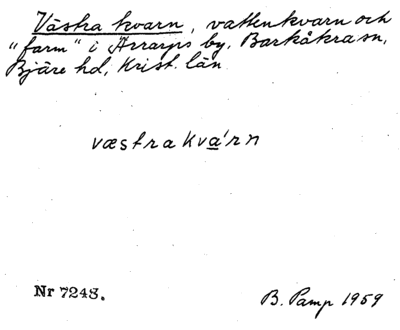 Västra kvarn, vattenkvarn och
"farm" i Ärrarps by, Barkåkra sn,
Bjäre hd, Krist. län
væstra kvárn
Nr 7243.
B. Pamp 1959